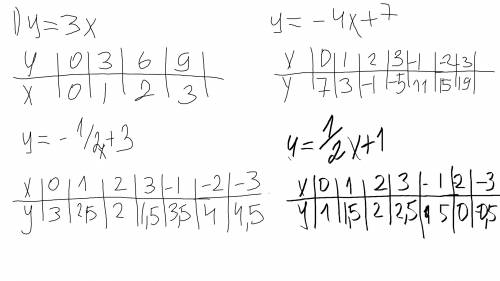 1) y=3x
y | 0 | 3 | 6 | 9
x | 0 | 1 | 2 | 3
y = -4x+7
x | 0 | 1 | 2 | 3 | -1 | -2 | 3
y | 7 | 3 | -1 | -5 | 11 | 15 | 19
y = -1/2x+3
x | 0 | 1 | 2 | 3 | -1 | -2 | -3
y | 3 | 2,5 | 2 | 1,5 | 3,5 | 4 | 4,5
y = 1/2x+1
x | 0 | 1 | 2 | 3 | -1 | 2 | -3
y | 1 | 1,5 | 2 | 2,5 | 5 | 0 | -0,5